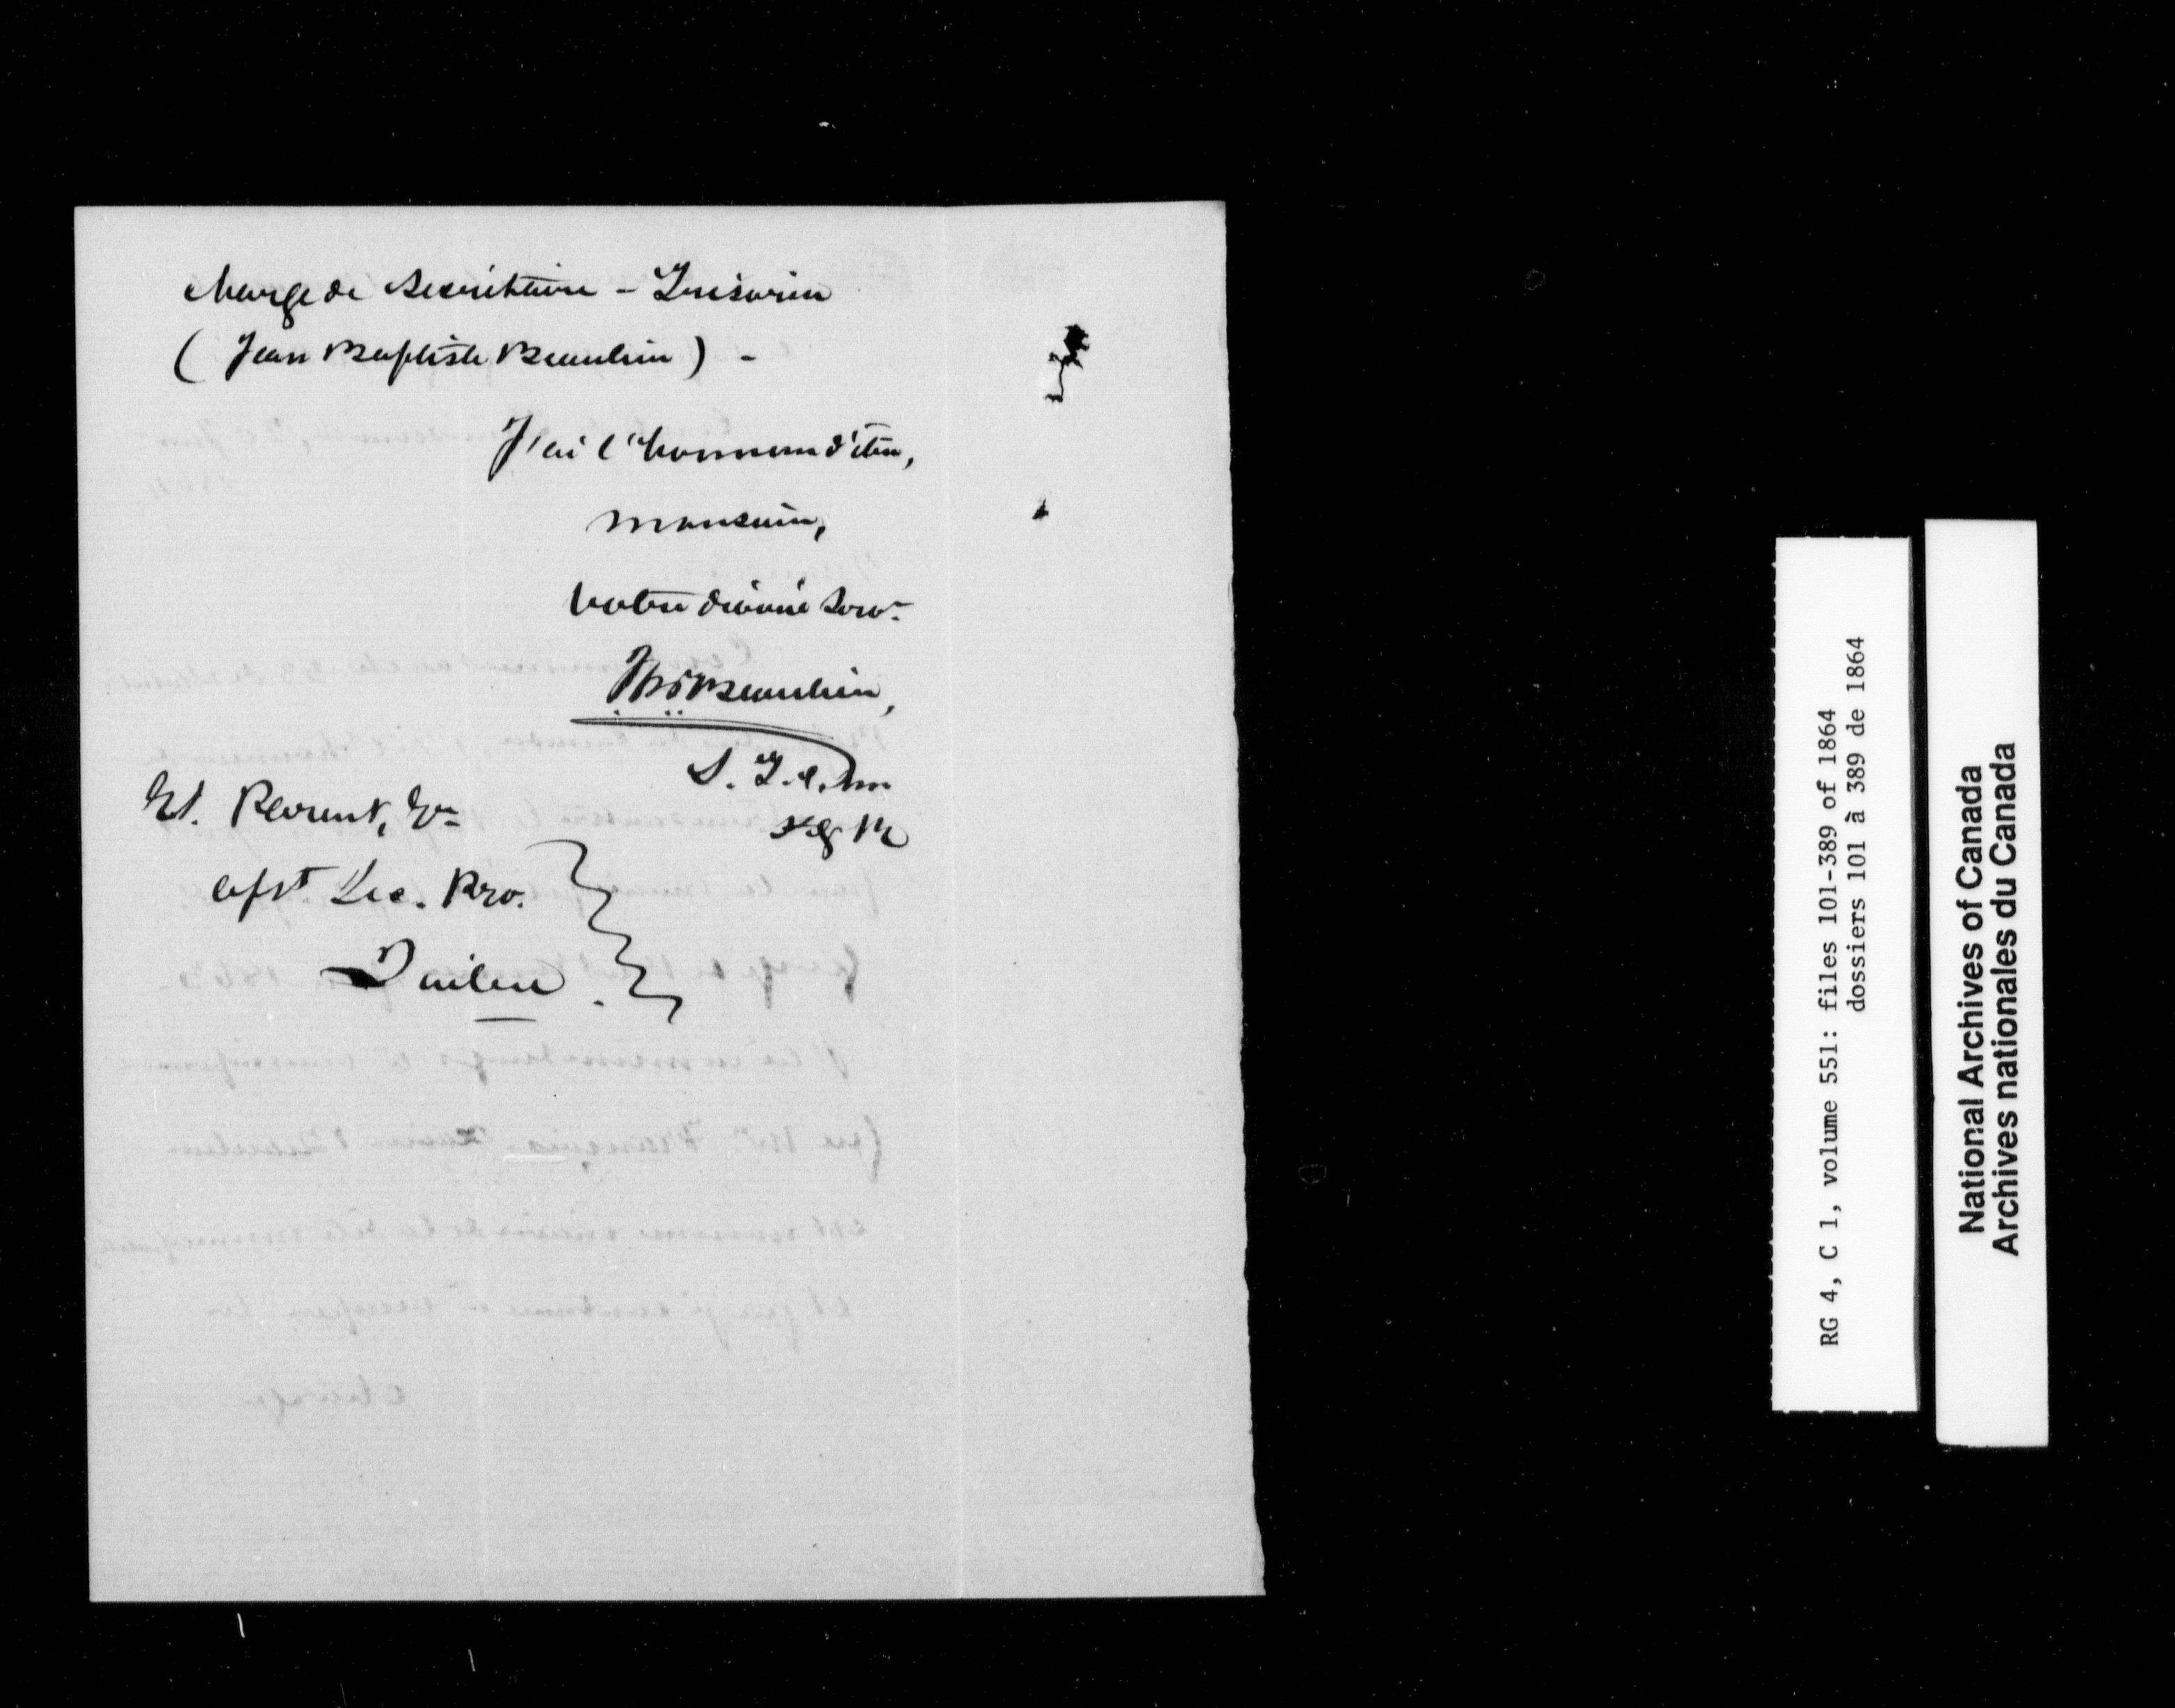 charge de Secrétaire-Trésorier
(Jean Baptiste Beaulieu) -
J'ai l'honneur d'être,
Monsieur,
Votre dévoué Serv.
JBte Beaulieu,
S. T. C. M.
Et. Parent, Er
Asst. Sec. Pro.
Québec.
RG 4, C 1, volume 551: files 101-389 of 1864
dossiers 101 à 389 de 1864
National Archives of Canada
Archives nationales du Canada